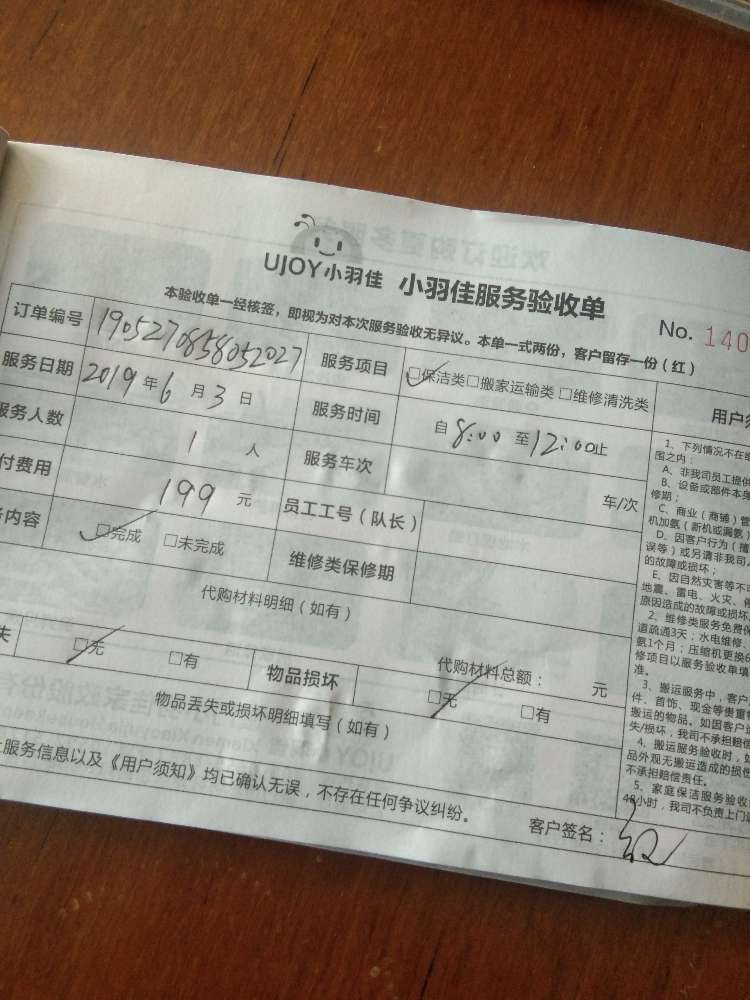 UJOY小羽佳 小羽佳服务验收单
No. 140
本验收单一经核签，即视为对本次服务验收无异议。本单一式两份，客户留存一份（红）
订单编号 1905270858052027 服务项目 □保洁类□搬家运输类 □维修清洗类
服务日期 2019 年 6 月 3 日 服务时间 自 8:00 至 12:00止
服务人数 1 人 服务车次 车/次
付费用 199 元 员工工号（队长）
内容 □完成 □未完成 维修类保修期
代购材料明细（如有）
代购材料总额： 元
失 □无 □有 物品损坏 □无 □有
物品丢失或损坏明细填写（如有）
上服务信息以及《用户须知》均已确认无误，不存在任何争议纠纷。
客户签名：
用户须
1、下列情况不在
围之内：
A、非我司员工提供
B、设备或部件本身
修期；
C、商业（商铺）管
机加氨（新机或漏氨）
D、因客户行为（撞
误等）或另请非我司
的故障或损坏；
E、因自然灾害等不
地震、雷电、火灾、
原因造成的故障或损坏
2、维修类服务免费保
道疏通3天；水电维修、
氨1个月；压缩机更换
修项目以服务验收单填
准。
3、搬运服务中，客户
件、首饰、现金等贵重
搬运的物品。如因客户
失/损坏，我司不承担赔偿
4、搬运服务验收时，如
品外观无搬运造成的损
不承担赔偿责任。
5、家庭保洁服务验收
48小时，我司不负责上门